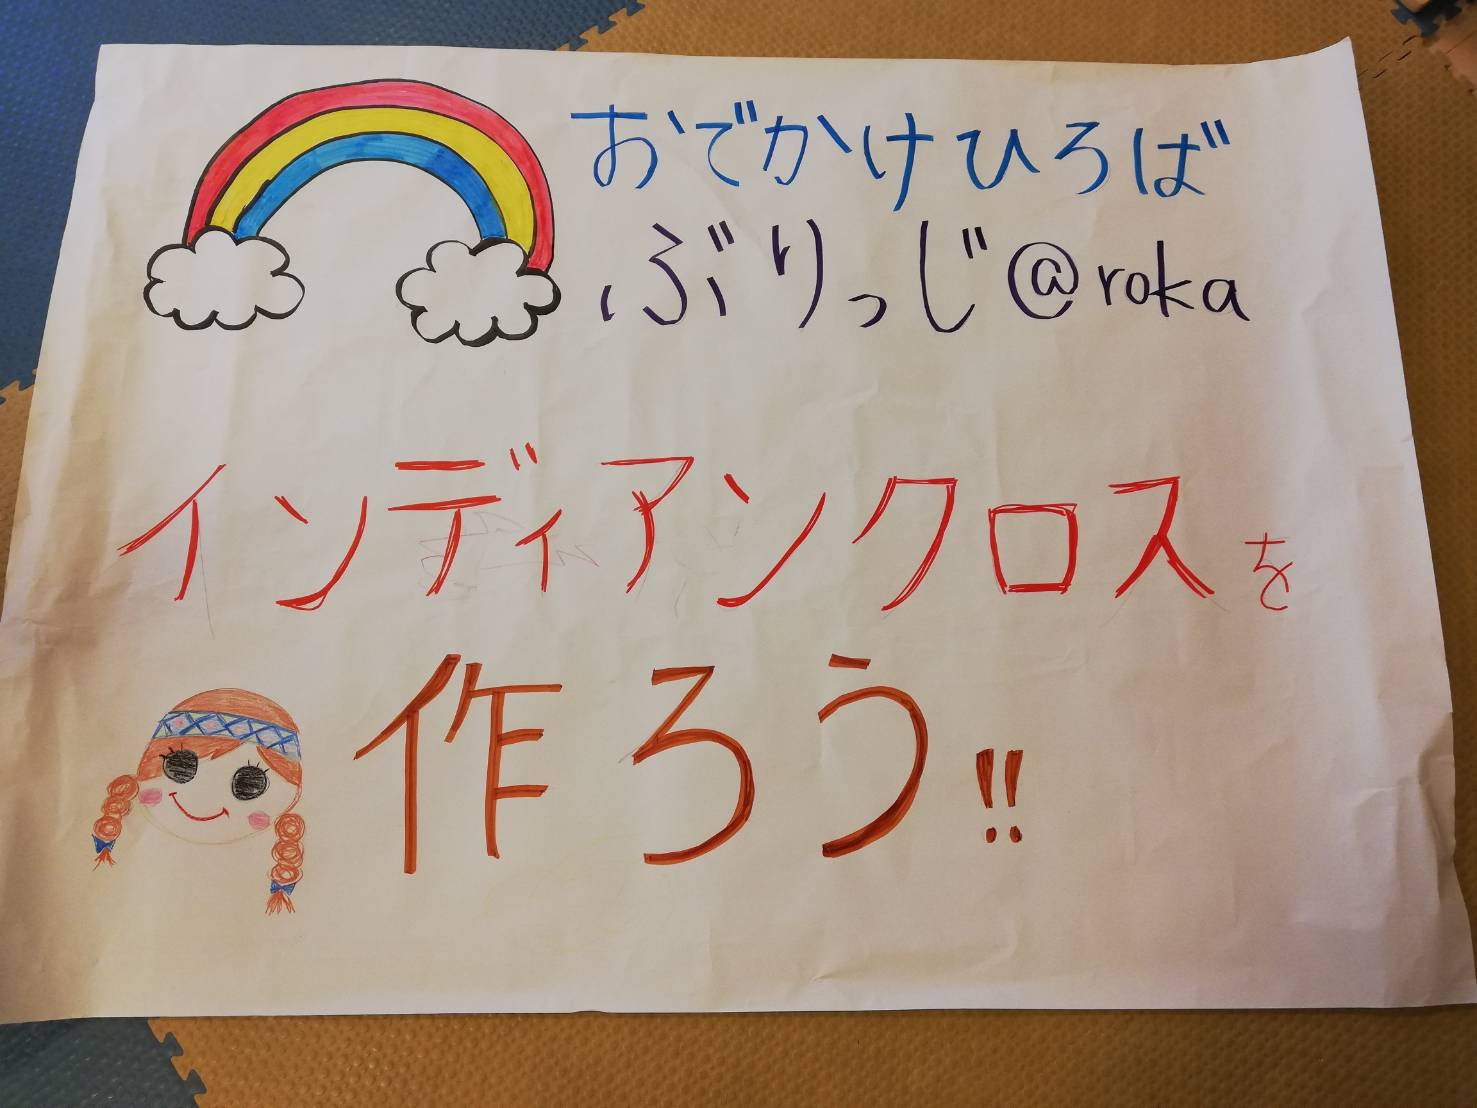 おでかけひろば
ぶりっじ@roka
インディアンクロスを
作ろう!!